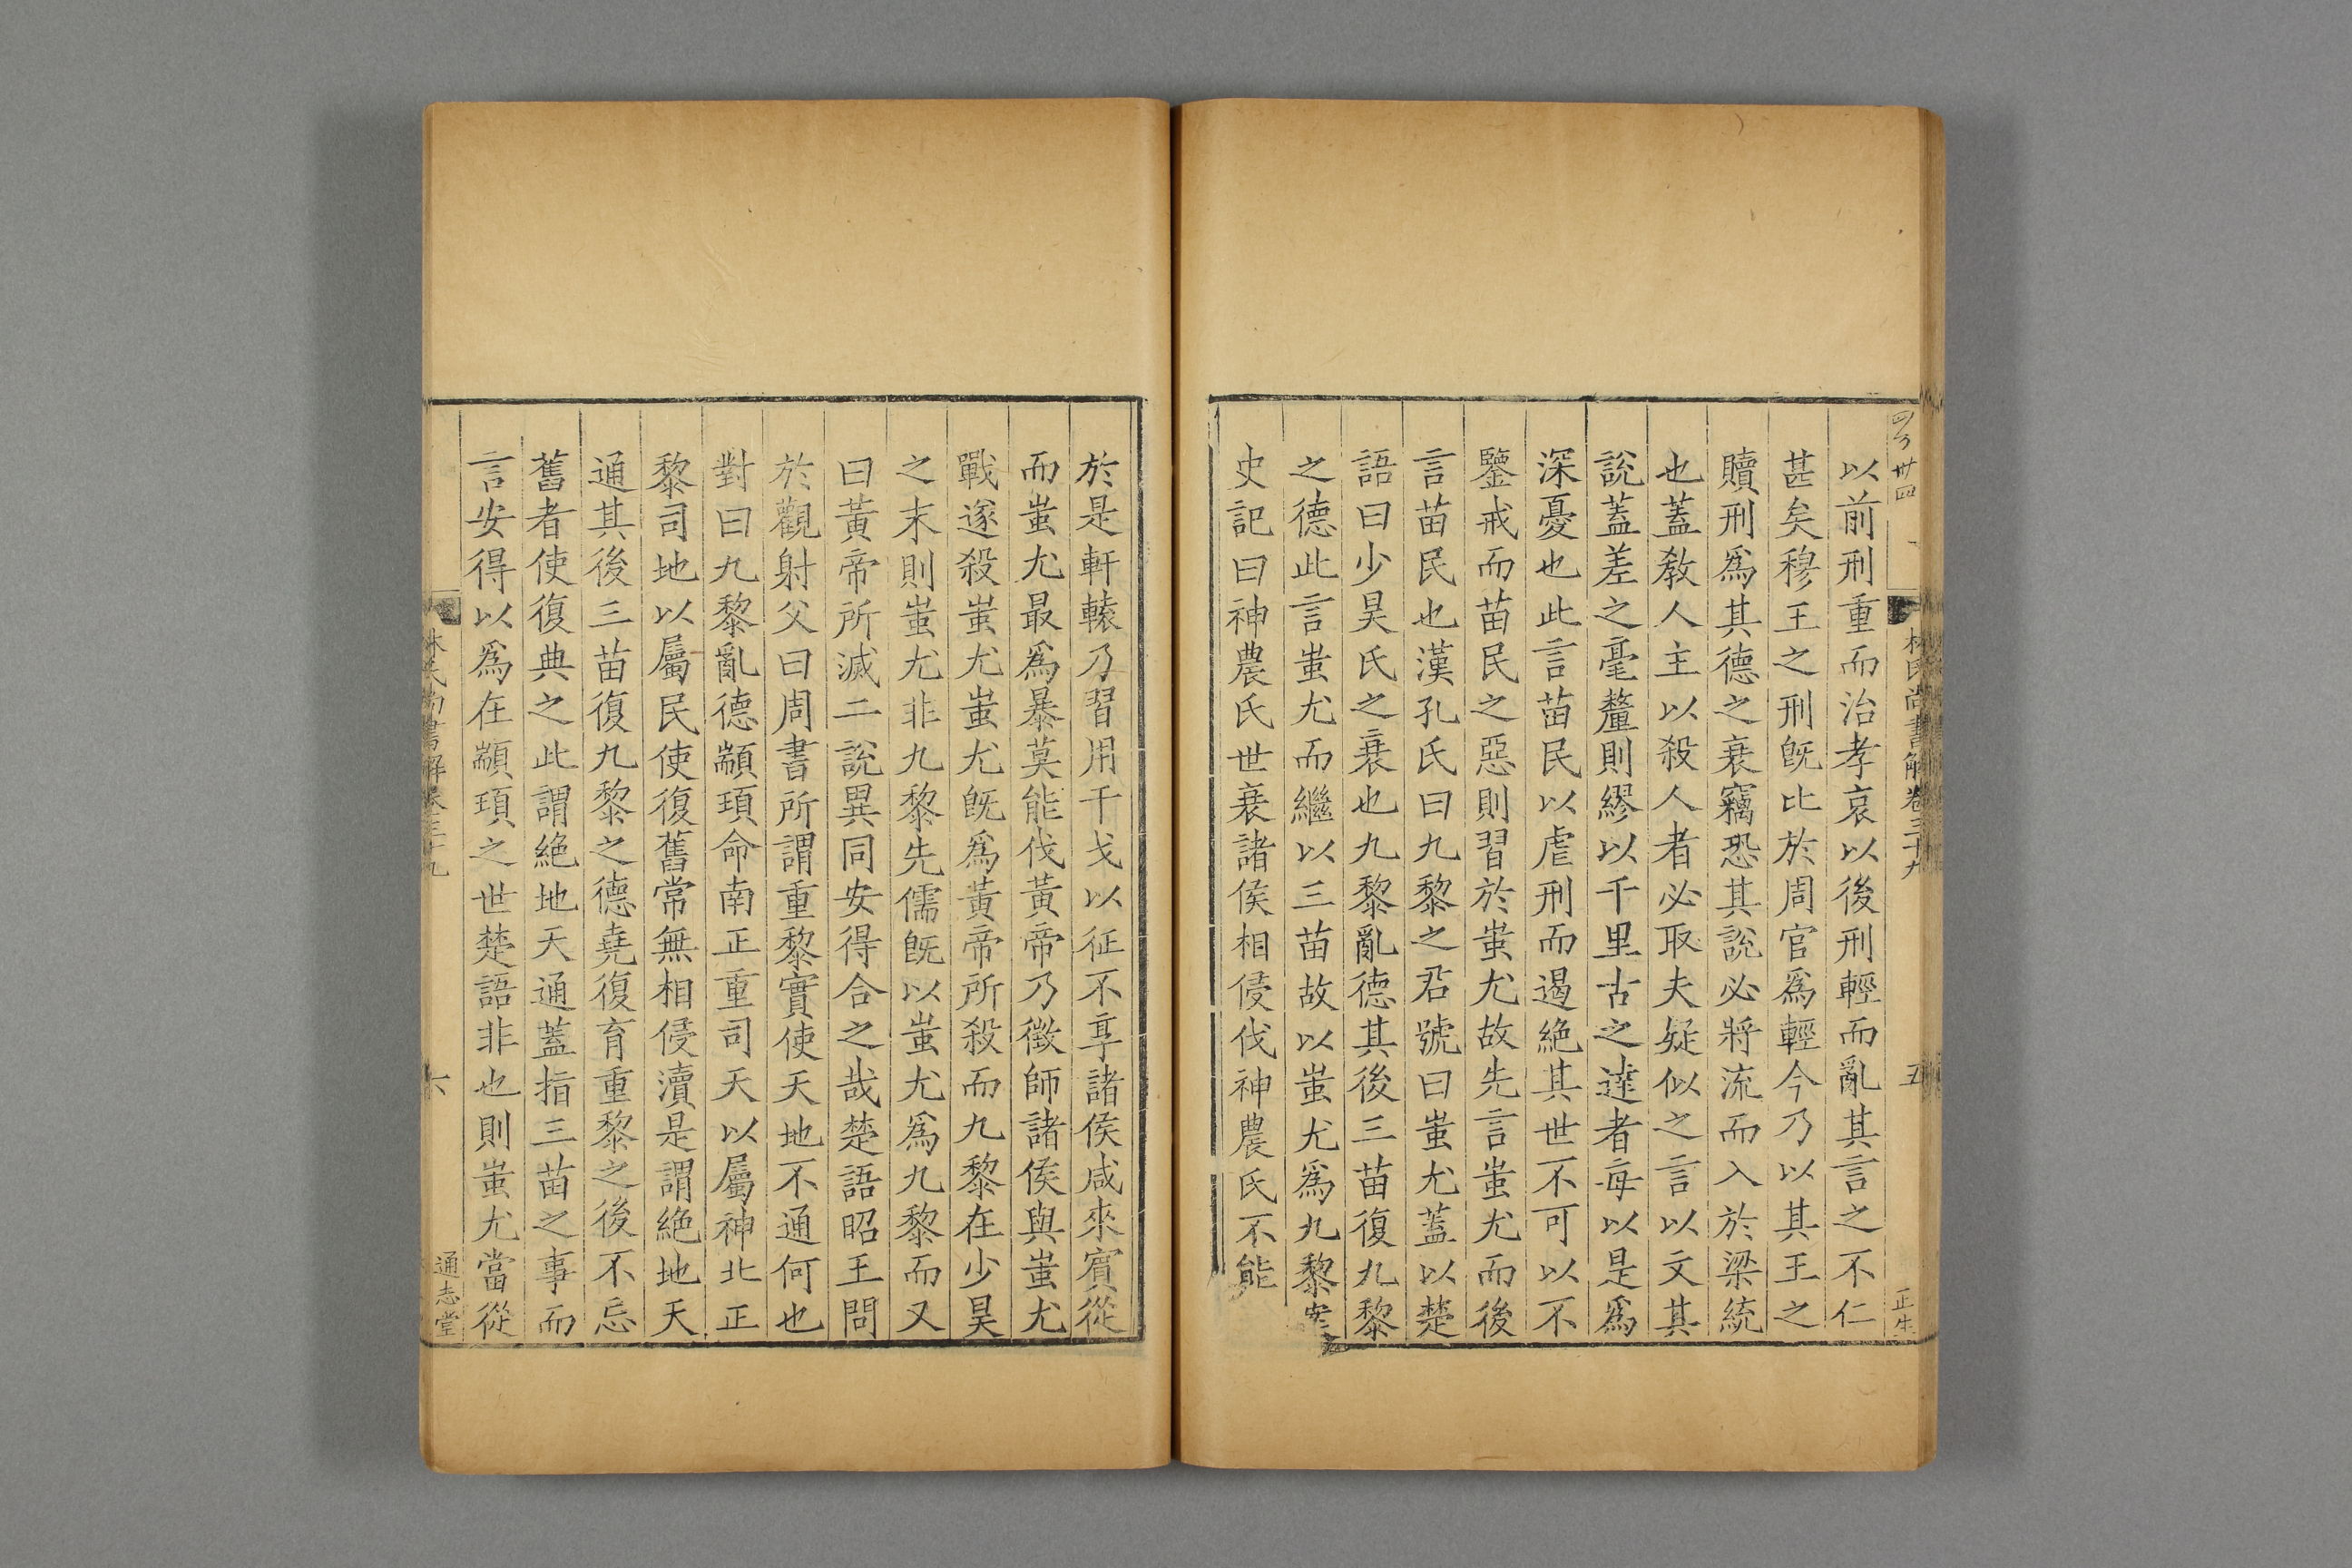 林氏尚書解卷三十九
五
以前刑重而治孝哀以後刑輕而亂其言之不仁
甚矣穆王之刑旣比於周官爲輕今乃以其王之
贖刑爲其德之衰竊恐其說必將流而入於梁統
也蓋教人主以殺人者必取夫疑似之言以文其
說蓋差之毫釐則繆以千里古之達者每以是爲
深憂也此言苗民以虐刑而遏絕其世不可以不
鑒戒而苗民之惡則習於蚩尤故先言蚩尤而後
言苗民也漢孔氏曰九黎之君號曰蚩尤蓋以楚
語曰少昊氏之衰也九黎亂德其後三苗復九黎
之德此言蚩尤而繼以三苗故以蚩尤爲九黎案
史記曰神農氏世衰諸侯相侵伐神農氏不能
於是軒轅乃習用干戈以征不享諸侯咸來賓從
而蚩尤最爲暴莫能伐黃帝乃徵師諸侯與蚩尤
戰遂殺蚩尤蚩尤旣爲黃帝所殺而九黎在少昊
之末則蚩尤非九黎先儒旣以蚩尤爲九黎而又
曰黃帝所滅二說異同安得合之哉楚語昭王問
於觀射父曰周書所謂重黎實使天地不通何也
對曰九黎亂德顓頊命南正重司天以屬神北正
黎司地以屬民使復舊常無相侵瀆是謂絕地天
通其後三苗復九黎之德堯復育重黎之後不忘
舊者使復典之此謂絕地天通蓋指三苗之事而
言安得以爲在顓頊之世楚語非也則蚩尤當從
林氏尚書解卷三十九
六
通志堂